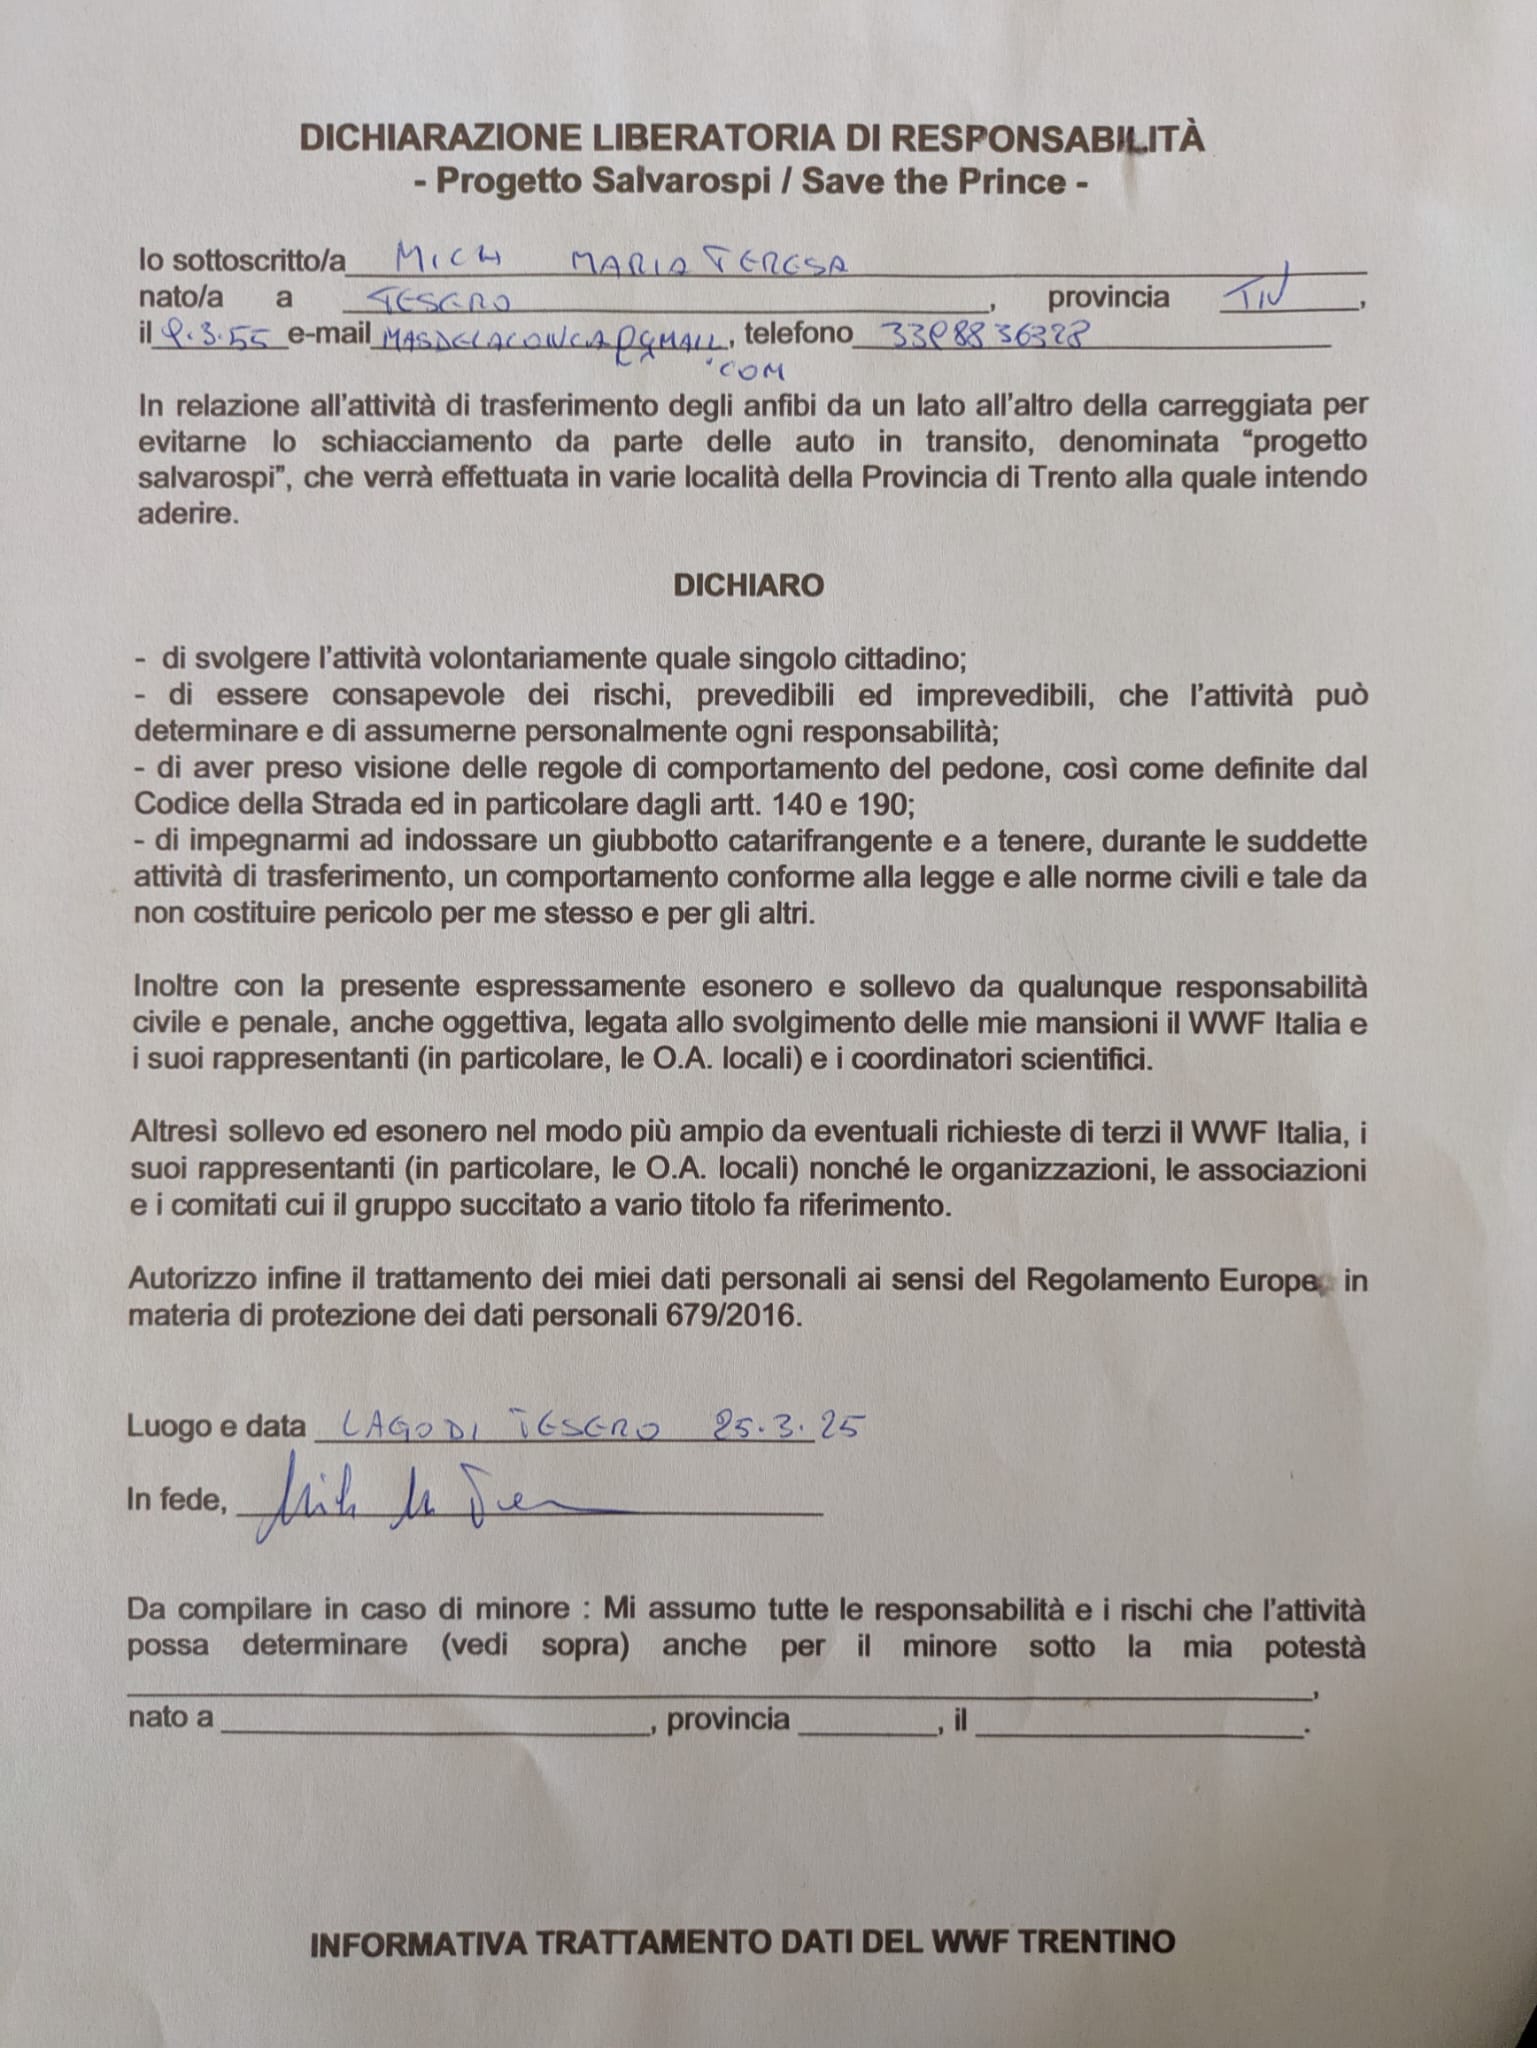 DICHIARAZIONE LIBERATORIA DI RESPONSABILITÀ
- Progetto Salvarospi / Save the Prince -
Io sottoscritto/a MICH MARIA TERESA
nato/a a TESERO, provincia TN,
il 9.3.55 e-mail MASDELACONCA@GMAIL, telefono 3398836328
.COM
In relazione all'attività di trasferimento degli anfibi da un lato all'altro della carreggiata per
evitarne lo schiacciamento da parte delle auto in transito, denominata “progetto
salvarospi”, che verrà effettuata in varie località della Provincia di Trento alla quale intendo
aderire.
DICHIARO
- di svolgere l'attività volontariamente quale singolo cittadino;
- di essere consapevole dei rischi, prevedibili ed imprevedibili, che l'attività può
determinare e di assumerne personalmente ogni responsabilità;
- di aver preso visione delle regole di comportamento del pedone, così come definite dal
Codice della Strada ed in particolare dagli artt. 140 e 190;
- di impegnarmi ad indossare un giubbotto catarifrangente e a tenere, durante le suddette
attività di trasferimento, un comportamento conforme alla legge e alle norme civili e tale da
non costituire pericolo per me stesso e per gli altri.
Inoltre con la presente espressamente esonero e sollevo da qualunque responsabilità
civile e penale, anche oggettiva, legata allo svolgimento delle mie mansioni il WWF Italia e
i suoi rappresentanti (in particolare, le O.A. locali) e i coordinatori scientifici.
Altresì sollevo ed esonero nel modo più ampio da eventuali richieste di terzi il WWF Italia, i
suoi rappresentanti (in particolare, le O.A. locali) nonché le organizzazioni, le associazioni
e i comitati cui il gruppo succitato a vario titolo fa riferimento.
Autorizzo infine il trattamento dei miei dati personali ai sensi del Regolamento Europeo in
materia di protezione dei dati personali 679/2016.
Luogo e data LAGO DI TESERO 25.3.25
In fede, Mich M Ter
Da compilare in caso di minore : Mi assumo tutte le responsabilità e i rischi che l'attività
possa determinare (vedi sopra) anche per il minore sotto la mia potestà
,
nato a , provincia , il .
INFORMATIVA TRATTAMENTO DATI DEL WWF TRENTINO